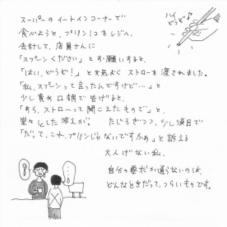 スーパーのイートインコーナーで
食べようと、プリン1コをレジへ。
会計して、店員さんに
「スプーンください」とお願いすると、
「はい、どうぞ!」と元気よく ストローを渡されました。
「私、スプーンって言ったんですけど…」と
少し責め口調で告げると、
「あら、ストローって聞こえたもので」と、
堂々とした答えが。 たじろぎつつ、少し涙目で
「だって、これ、プリンじゃないですかぁ」と訴える
大人げない私。
自分の要求が通らないのは、
どんなときだって、つらいものです。
ハイ
どうぞ